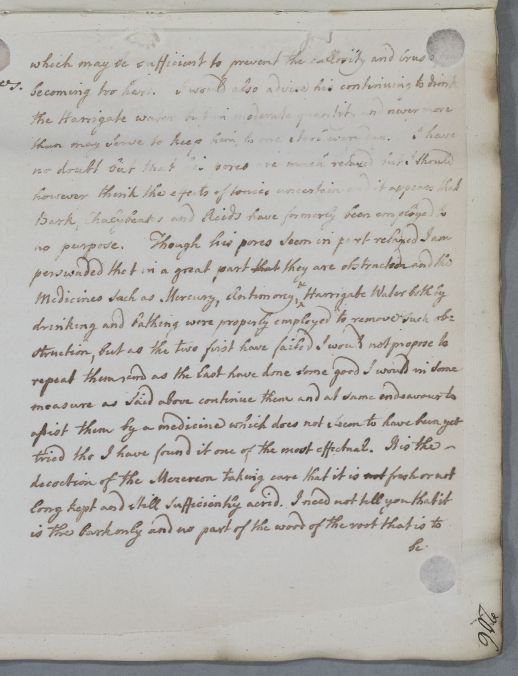 es.
which may be sufficient to prevent the callosity and crust
becoming too hard. I would also advise his continuing to drink
the Harrigate water but in moderate quantity and never more
than may serve to keep him to one
no doubt but that his pores are much relaxed but I should
however think the effects of tonics uncertain and it appears that
Bark, Chalybeats and Acids have formerly been employed to
no purpose. Though his pores seem in part relaxed I am
perswaded that in a great part that they are obstructed and the
Medicines such as Mercury, Antimony, & Harrigate Water both by
drinking and bathing were properly employed to remove such ob-
struction, but as the two first have failed I would not propose to
repeat them and as the last have done some good I would in some
measure as said above continue them and at same endeavour to
assist them by a medicine which does not seem to have been yet
tried tho I have found it one of the most effectual. It is the
decoction of the Mezereon taking care that it is not fresh or not
long kept and still sufficiently acrid. I need not tell you that it
is the bark only and no part of the wood of the root that is to
be